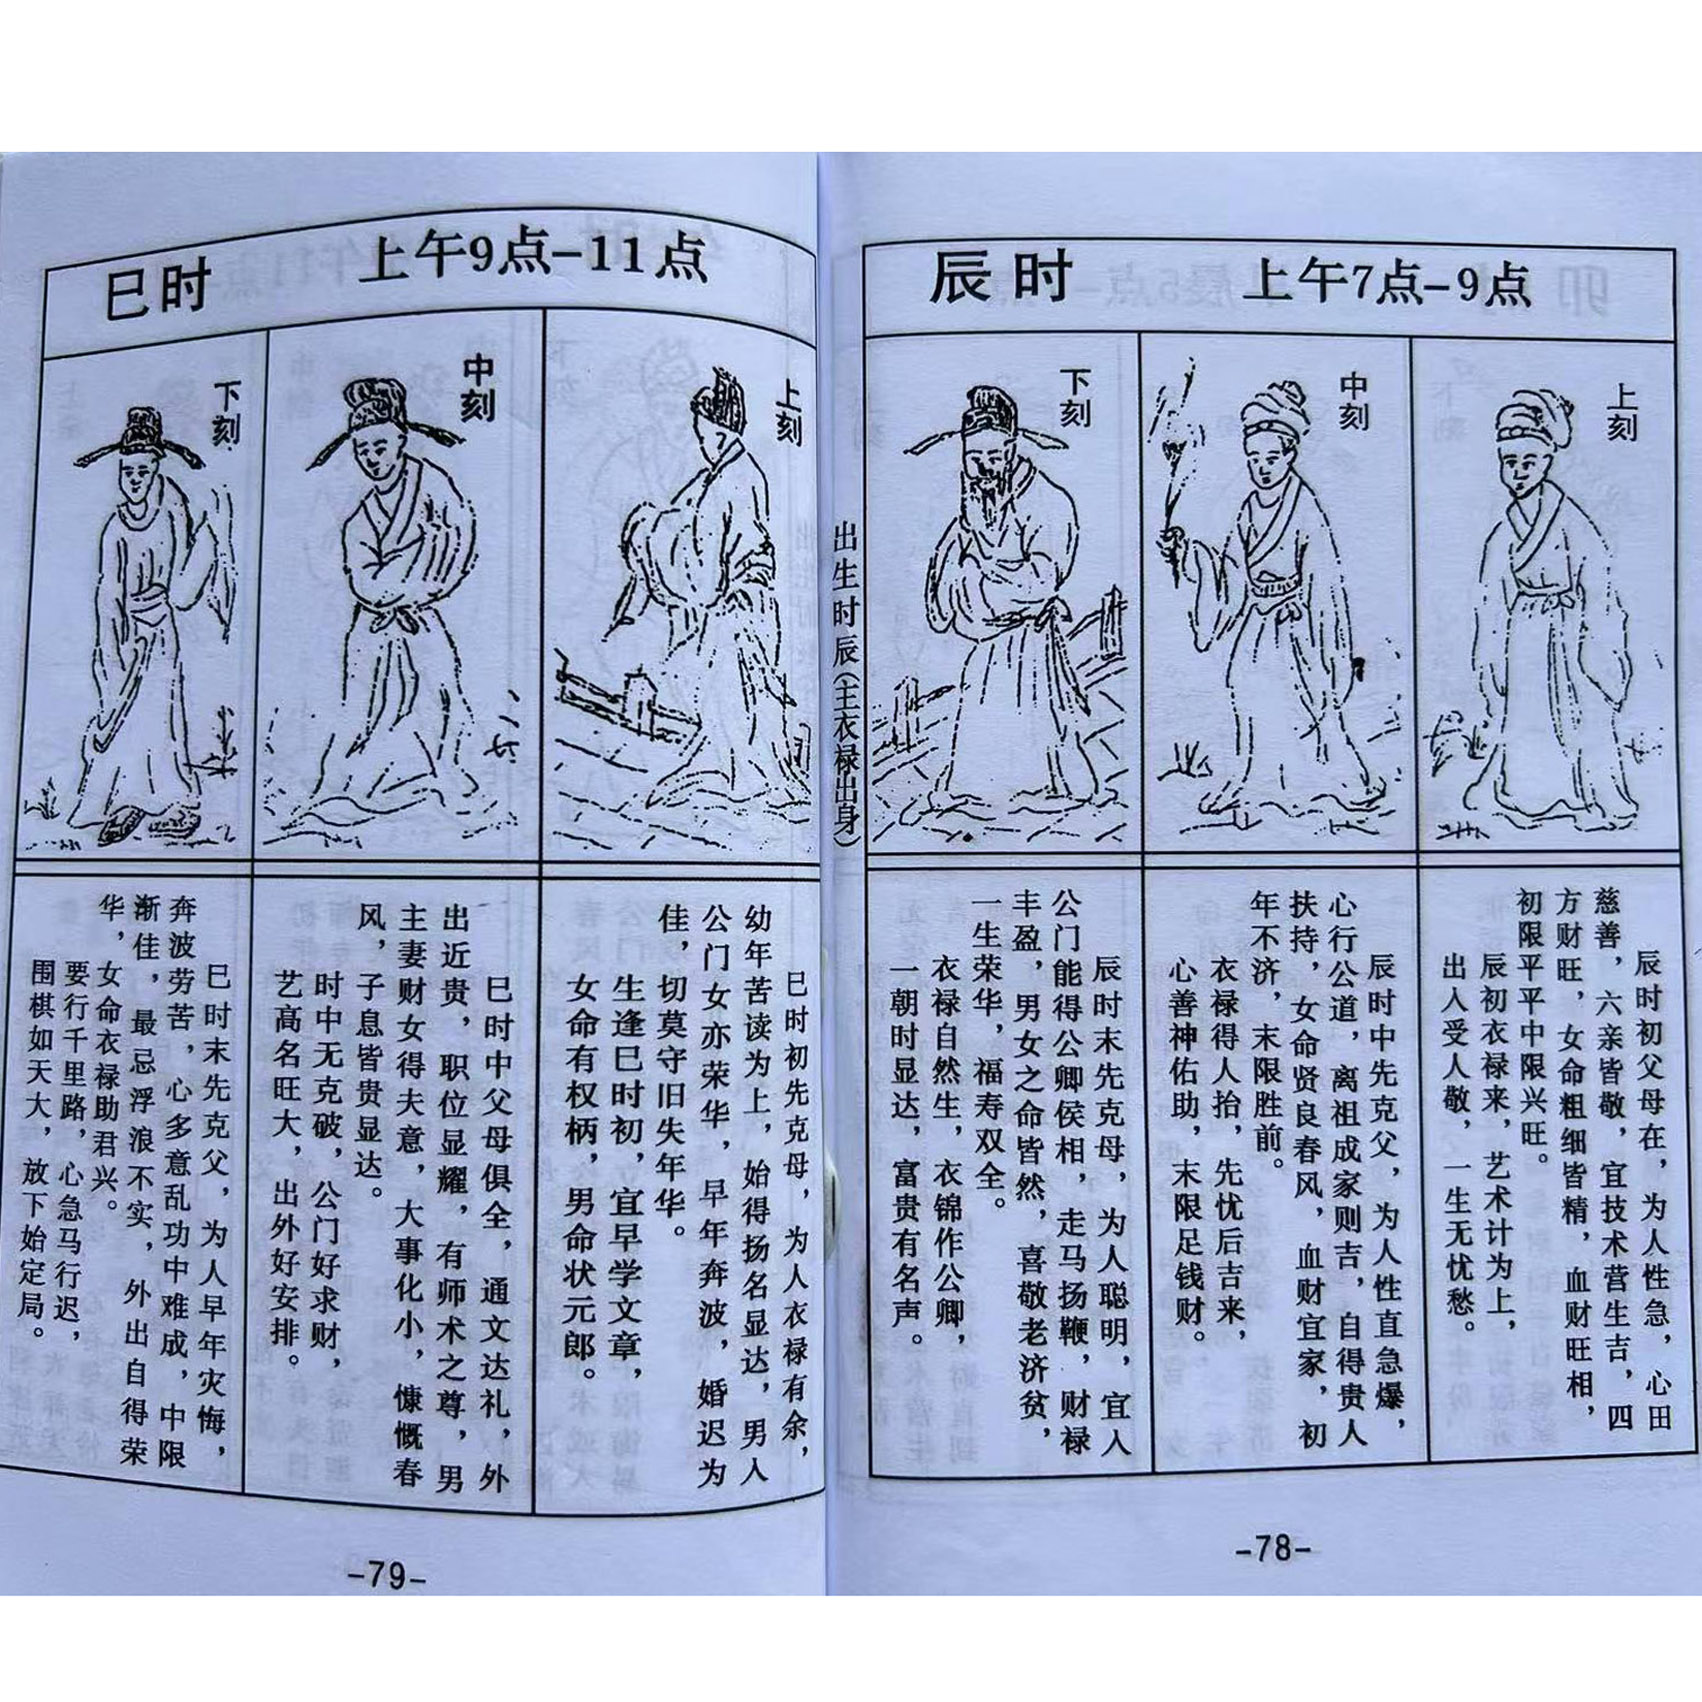 辰时 上午7点-9点
上刻
辰时初父母在，为人性急，心田
慈善，六亲皆敬，宜技术营生吉，四
方财旺，女命粗细皆精，血财旺相，
初限平平中限兴旺。
辰初衣禄来，艺术计为上，
出人受人敬，一生无忧愁。
中刻
辰时中先克父，为人性直急爆，
心行公道，离祖成家则吉，自得贵人
扶持，女命贤良春风，血财宜家，初
年不济，末限胜前。
衣禄得人抬，先忧后吉来，
心善神佑助，末限足钱财。
下刻
辰时末先克母，为人聪明，宜人
公门能得公卿侯相，走马扬鞭，财禄
丰盈，男女之命皆然，喜敬老济贫，
一生荣华，福寿双全。
衣禄自然生，衣锦作公卿，
一朝时显达，富贵有名声。
-78-
出生时辰（主衣禄出身）
巳时 上午9点-11点
上刻
巳时初先克母，为人衣禄有余，
幼年苦读为上，始得扬名显达，男人
公门女亦荣华，早年奔波，婚迟为
佳，切莫守旧失年华。
生逢巳时初，宜早学文章，
女命有权柄，男命状元郎。
中刻
巳时中父母俱全，通文达礼，外
出近贵，职位显耀，有师术之尊，男
主妻财女得夫意，大事化小，慷慨春
风，子息皆贵显达。
时中无克破，公门好求财，
艺高名旺大，出外好安排。
下刻
巳时末先克父，为人早年灾悔，
奔波劳苦，心多意乱功中难成，中限
渐佳，最忌浮浪不实，外出自得荣
华，女命衣禄助君兴。
要行千里路，心急马行迟，
围棋如天大，放下始定局。
-79-